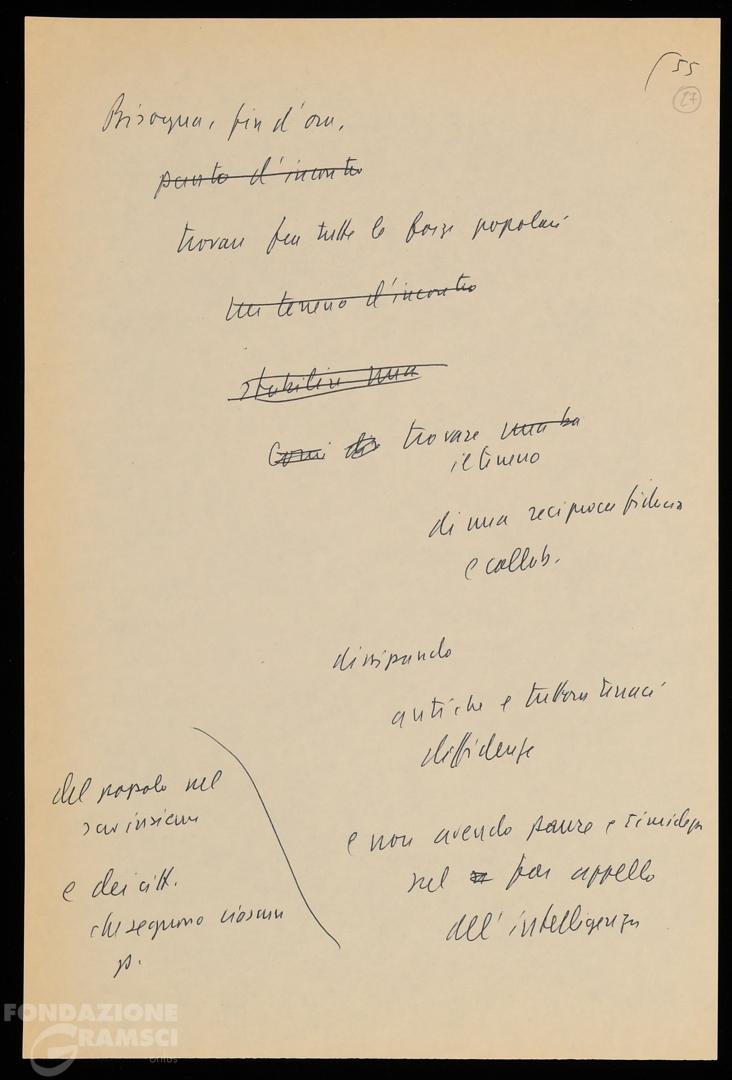 55
27
Bisogna, fin d'ora,
punto d'incontro
trovare fra tutte le forze popolari
un terreno d'incontro
stabilire una
trovare una ba
il terreno
di una reciproca fiducia
e collab.
dissipando
antiche e tuttora tenaci
diffidenze
e non avendo paure e timidezze
nel far appello
all'intelligenza
del popolo nel
suo insieme
e dei citt.
che seguono ciascun
p.
FONDAZIONE
GRAMSCI
onlus